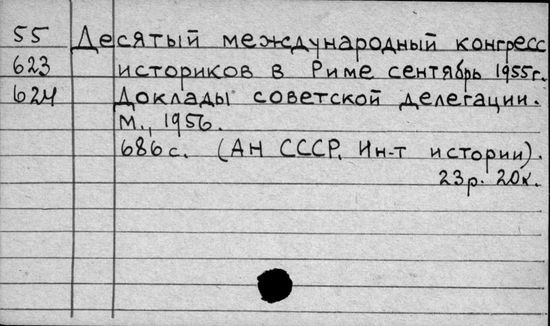 55 Десятый международный конгресс
623 историков в Риме сентябрь 1955г.
624 Доклады советской делегации.
М., 1956.
686с. (АН СССР. Ин-т истории).
23р. 20к.